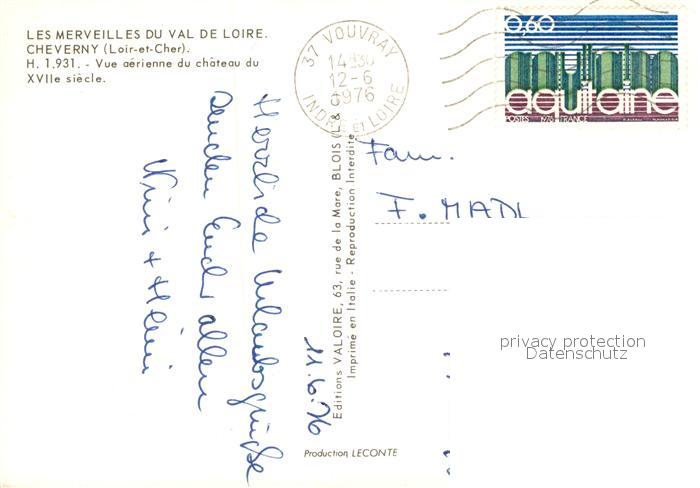 LES MERVEILLES DU VAL DE LOIRE.
CHEVERNY (Loir-et-Cher).
H. 1.931. - Vue aérienne du château du
XVIIe siècle.
37 VOUVRAY
14H30
12-6
1976
INDRE ET LOIRE
0,60
aquitaine
POSTES 1976 FRANCE
Herrliche Urlaubsgrüsse
senden Euch allen
11.6.76
Editions VALOIRE, 63, rue de la Mare, BLOIS (L. &
Imprimé en Italie - Reproduction Interdite
Fam.
F. MADL
privacy protection
Datenschutz
Production LECONTE